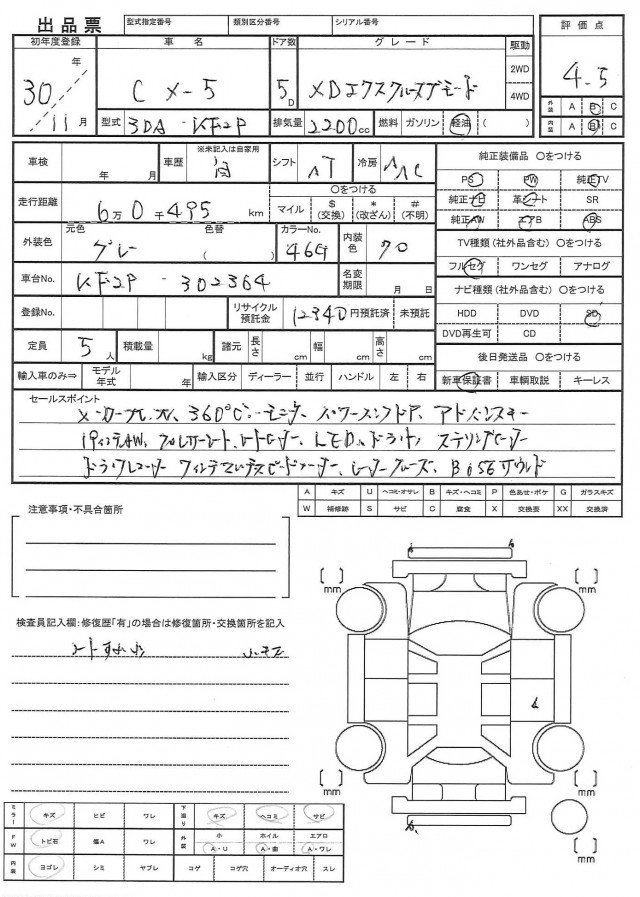 出品票
型式指定番号 類別区分番号 シリアル番号
初年度登録 車名 ドア数 グレード 駆動 評価点
30 年 11月 CX-5 5D XDエクスクルーシブモード 2WD 4WD 4.5
外装 A B C
内装 A B C
型式 3DA-KF2P 排気量 2200cc 燃料 ガソリン 軽油 ( )
車検 年 月 車歴 ※未記入は自家用 シフト AT 冷房 AAC 純正装備品 〇をつける
PS PW 純正TV
走行距離 6万0千495km 〇をつける マイル $(交換) *(改ざん) #(不明) 純正ナビ 革シート SR
純正AW エアB ABS
外装色 元色 グレー 色替 ( ) カラーNo. 46G 内装色 クロ TV種類(社外品含む) 〇をつける
フルセグ ワンセグ アナログ
車台No. KF2P-302364 名変期限 月 日 ナビ種類(社外品含む) 〇をつける
登録No. リサイクル預託金 12340円預託済 未預託 HDD DVD SD
DVD再生可 CD
定員 5人 積載量 kg 諸元 長さ cm 幅 cm 高さ cm 後日発送品 〇をつける
輸入車のみ⇒ モデル年式 年 輸入区分 ディーラー 並行 ハンドル 左 右 新車保証書 車輌取説 キーレス
セールスポイント
360°ビューモニター、パワーバックドア、アドバンスキー
19インチAW、フルレザーシート、シートヒーター、LEDヘッドライト ステリングヒーター
ドラレコーダー レーダークルーズ、BOSEサウンド
A キズ U ヘコミ・オサレ B キズ・ヘコミ P 色あせ・ボケ G ガラスキズ
W 補修跡 S サビ C 腐食 X 交換要 XX 交換済
注意事項・不具合箇所
〔 〕mm 〔 〕mm
検査員記入欄:修復歴「有」の場合は修復箇所・交換箇所を記入
小キズ
〔 〕mm 〔 〕mm
〔 〕mm
ミラー キズ ヒビ ワレ 下廻り キズ ヘコミ サビ
FW トビ石 傷A ワレ 外装 小 A・U ホイル A・曲 エアロ A・ワレ
内装 ヨゴレ シミ ヤブレ コゲ コゲ穴 オーディオ穴 スレ